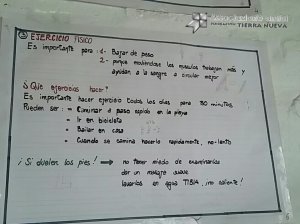 TIERRA NUEVA
③ EJERCICIO FÍSICO
Es importante para: 1- Bajar de peso
2- porque moviéndose los músculos trabajan más y
ayudan a la sangre a circular mejor
¿Qué ejercicios hacer?
Es importante hacer ejercicio todos los días por 30 minutos
Pueden ser: = Caminar a paso rápido en la playa
= Ir en bicicleta
= Bailar en casa
= Cuando se camina hacerlo rapidamente, no lento
¡Si duelen los pies! → no tener miedo de examinarlos
dar un masaje suave
lavarlos en agua TIBIA, ¡no caliente!